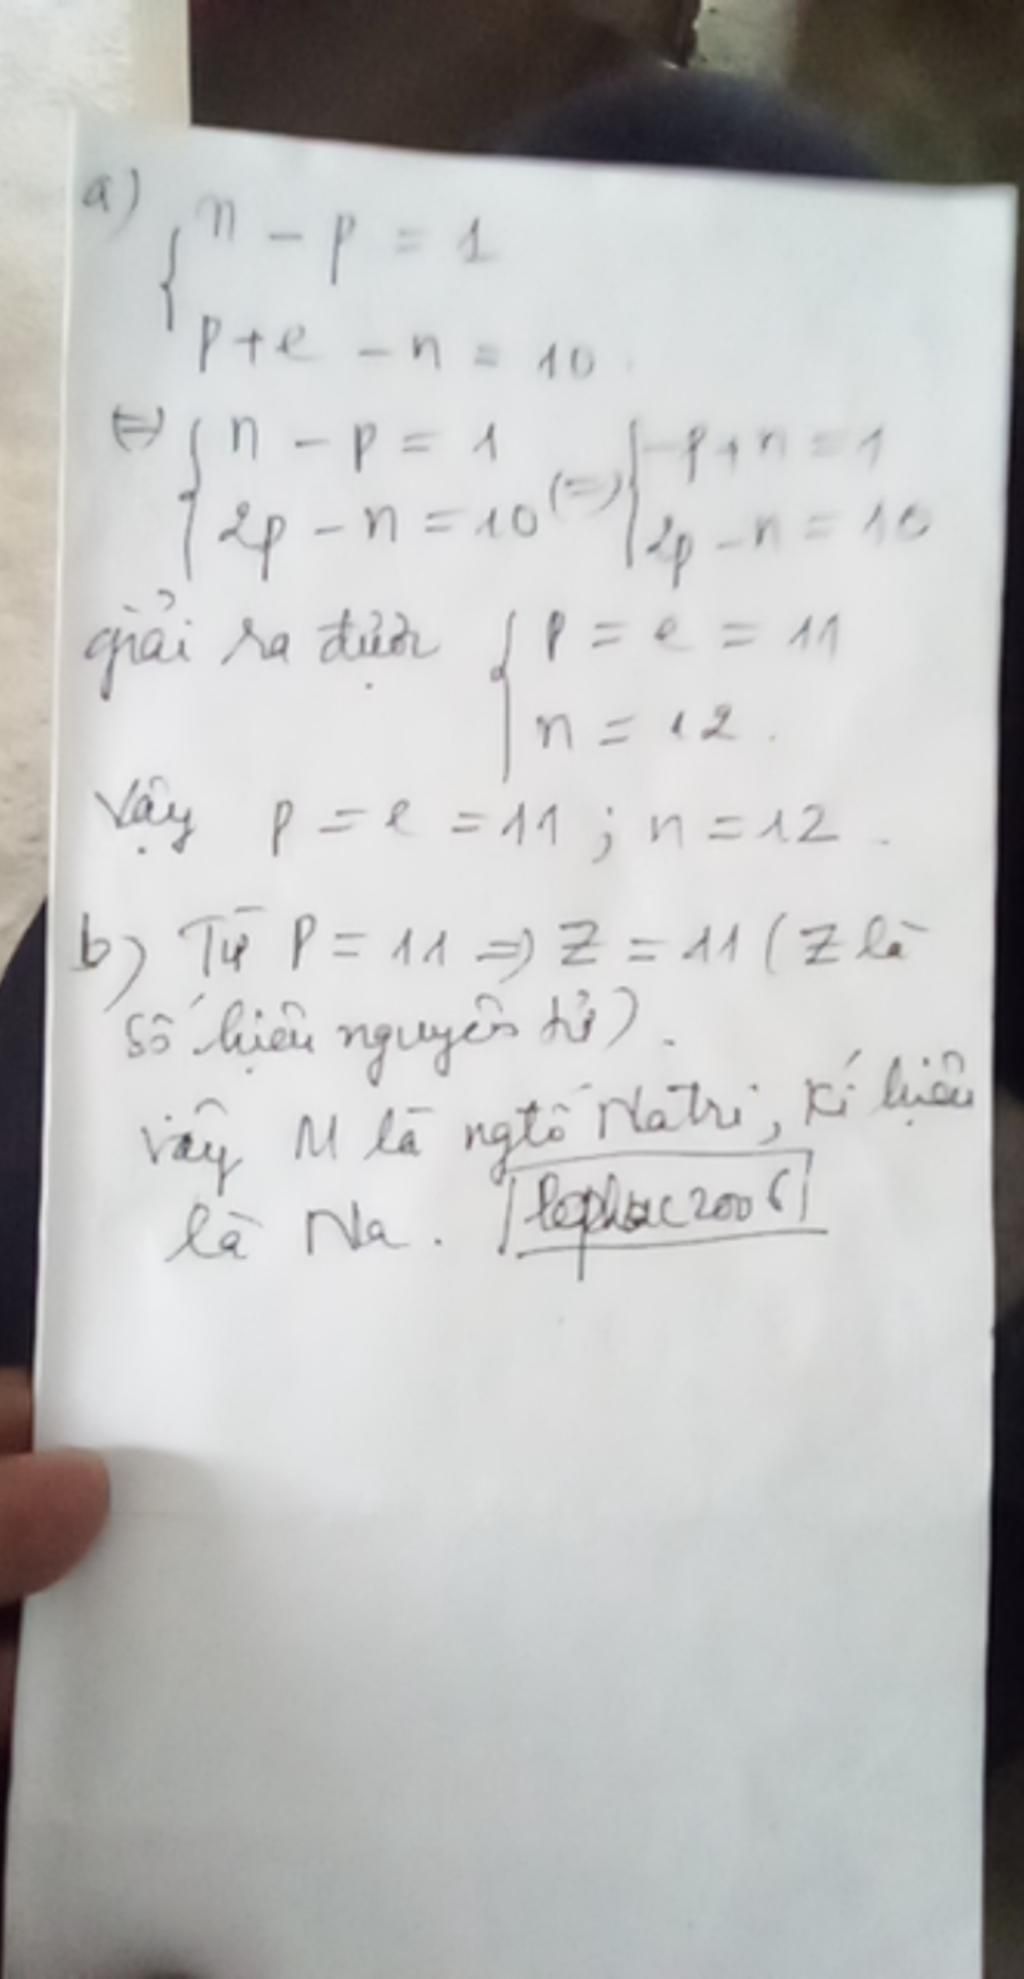 a) { n - p = 1
p + e - n = 10.
<=> { n - p = 1 <=> { -p + n = 1
2p - n = 10 2p - n = 10
giải ra được { p = e = 11
n = 12.
Vậy p = e = 11 ; n = 12.
b) Từ P = 11 => Z = 11 (Z là
số hiệu nguyên tử).
vậy M là ngtố Natri, kí hiệu
là Na. lephuc2006